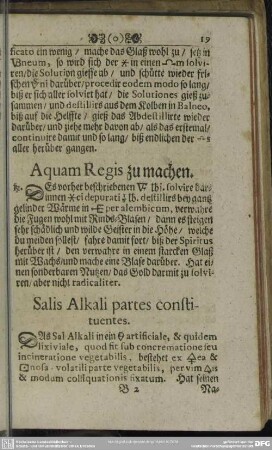 (o) 19
ficato ein wenig / mache das Glaß wohl zu / setz in
so wird sich der in einen solvi-
ren / die Solution giesse ab / und schütte wieder fri-
schen darüber / procedir eodem modo so lang /
biß er sich aller solvirt hat / die Solutiones gieß zu-
sammen / und destillirs aus dem Kolben in Balneo,
biß auf die Helffte / gieß das Abdestillirte wieder
darüber / und ziehe mehr davon ab / als das erstemal /
continuire damit und so lang / biß endlichen der
aller herüber gangen.
Aquam Regis zu machen.
Des vorher beschriebenen solvire dar-
innen depurati destillirs bey gantz
gelinder Wärme in per alembicum, verwahre
die Fugen wohl mit Rinds-Blasen / dann es steigen
sehr schädlich und wilde Geister in die Höhe / welche
du meiden sollest / fahre damit fort / biß der Spiritus
herüber ist / den verwahre in einem starcken Glaß
mit Wachs / und mache eine Blase darüber. Hat ei-
nen sonderbaren Nutzen / das Gold darmit zu solvi-
ren / aber nicht radicaliter.
Salis Alkali partes consti-
tuentes.
Das Sal Alkali ist ein artificiale, & quidem
lixiviale, quod fit sub concrematione seu
incineratione vegetabilis, bestehet ex ea &
volatili parte vegetabilis, per vim
& modum colliquationis fixatum. Hat seinen
B 2 Na-